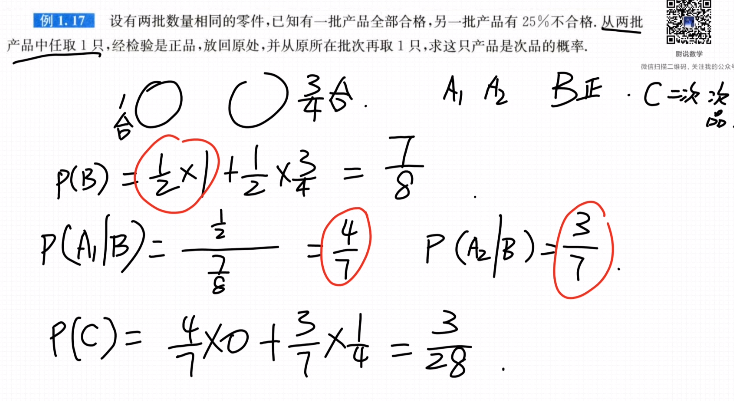 例1.17 设有两批数量相同的零件,已知有一批产品全部合格,另一批产品有 25%不合格.从两批
产品中任取1只,经检验是正品,放回原处,并从原所在批次再取1只,求这只产品是次品的概率.
蔚说数学
微信扫描二维码,关注我的公众号
1合 3/4合. A₁ A₂ B正. C=次次品.
P(B)=1/2×1+1/2×3/4=7/8.
P(A₁|B)=(1/2)/(7/8)=4/7 P(A₂|B)=3/7.
P(C)=4/7×0+3/7×1/4=3/28.